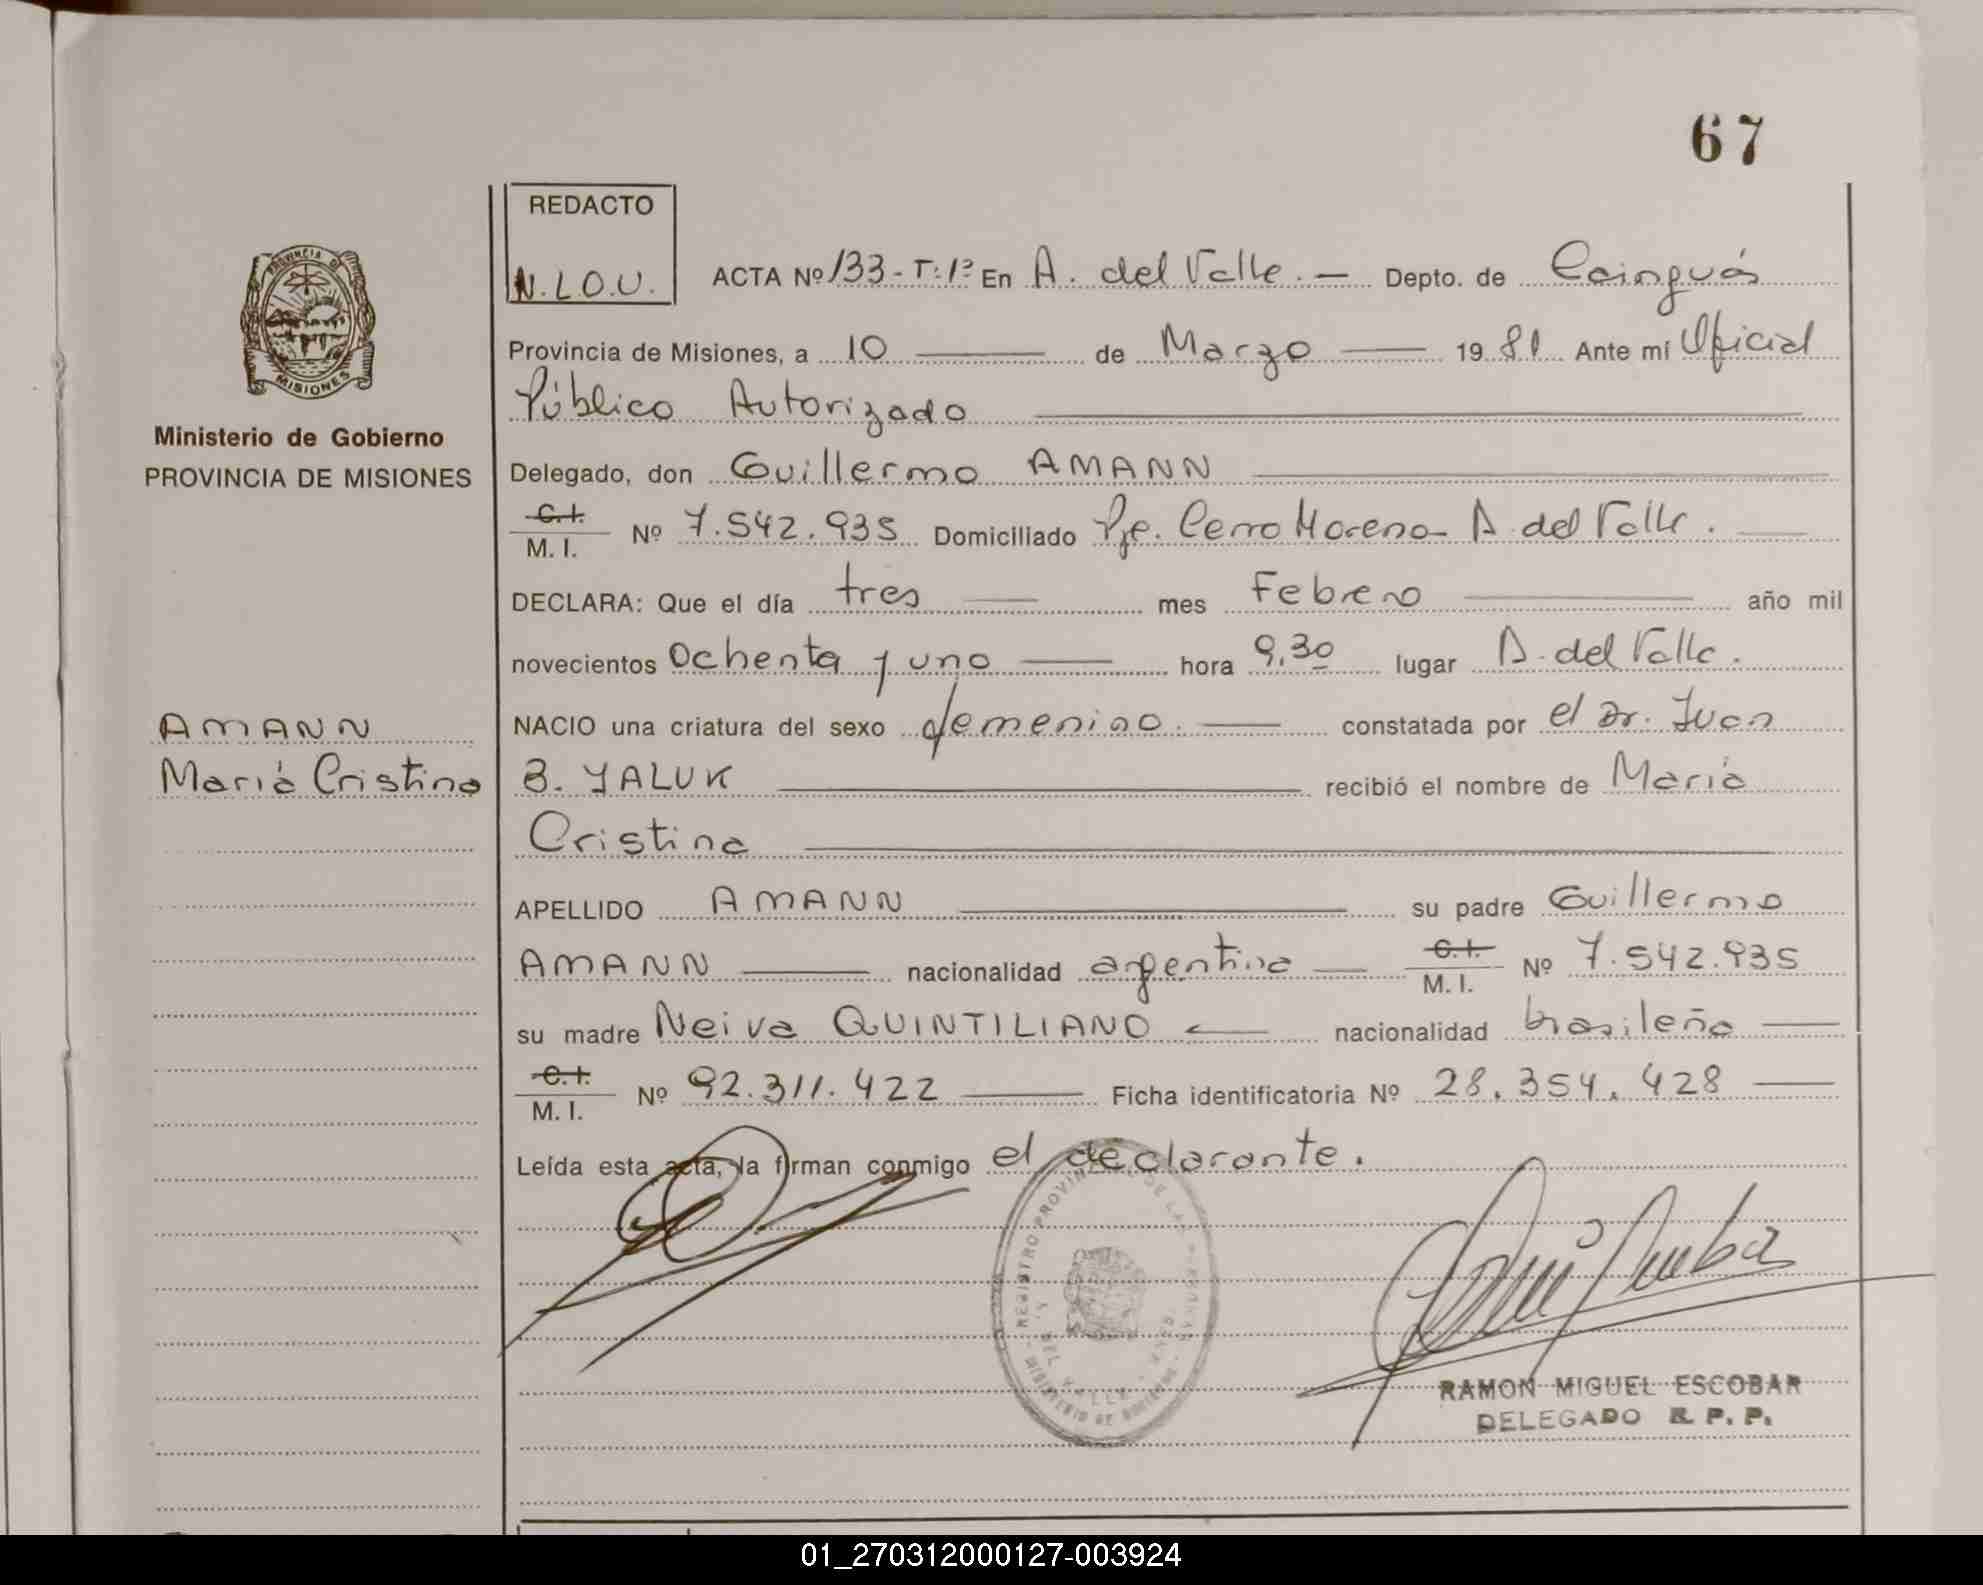 67
REDACTO
N.L.O.U.
ACTA Nº 133-T:1º En A. del Valle. — Depto. de Cainguás
PROVINCIA DE
MISIONES
Provincia de Misiones, a 10 — de Marzo — 1981 Ante mí Oficial
Público Autorizado
Ministerio de Gobierno
PROVINCIA DE MISIONES
Delegado, don Guillermo AMANN
C.I.
M. I. Nº 7.542.935 Domiciliado Pje. Cerro Moreno - A del Valle. —
DECLARA: Que el día tres — mes Febrero — año mil
novecientos Ochenta y uno — hora 9,30 lugar A. del Valle.
AMANN
María Cristina
NACIO una criatura del sexo femenino. — constatada por el Dr. Juan
B. YALUK — recibió el nombre de María
Cristina —
APELLIDO AMANN — su padre Guillermo
AMANN — nacionalidad argentina — C.I.
M. I. Nº 7.542.935
su madre Neiva QUINTILIANO — nacionalidad brasileña —
C.I.
M. I. Nº 92.311.422 — Ficha identificatoria Nº 28.354.428 —
Leída esta acta, la firman conmigo el declarante.
REGISTRO PROVINCIAL DE LAS PERSONAS
MINISTERIO DE GOBIERNO
DEL VALLE
RAMON MIGUEL ESCOBAR
DELEGADO R. P. P.
01_270312000127-003924